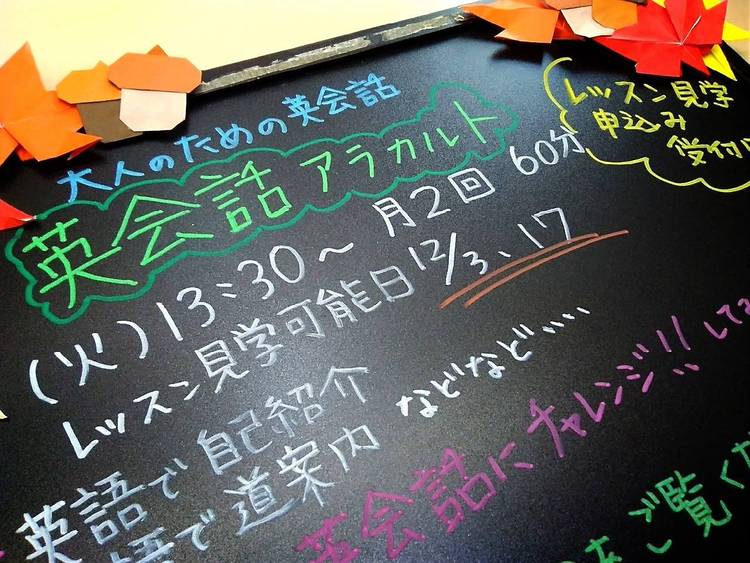 大人のための英会話
英会話 アラカルト
レッスン見学
申込み
受付
(火) 13:30〜 月2回 60分
レッスン見学可能日 12/3、17
英語で自己紹介
語で道案内 などなど....
英会話にチャレンジ!! して
をご覧くだ